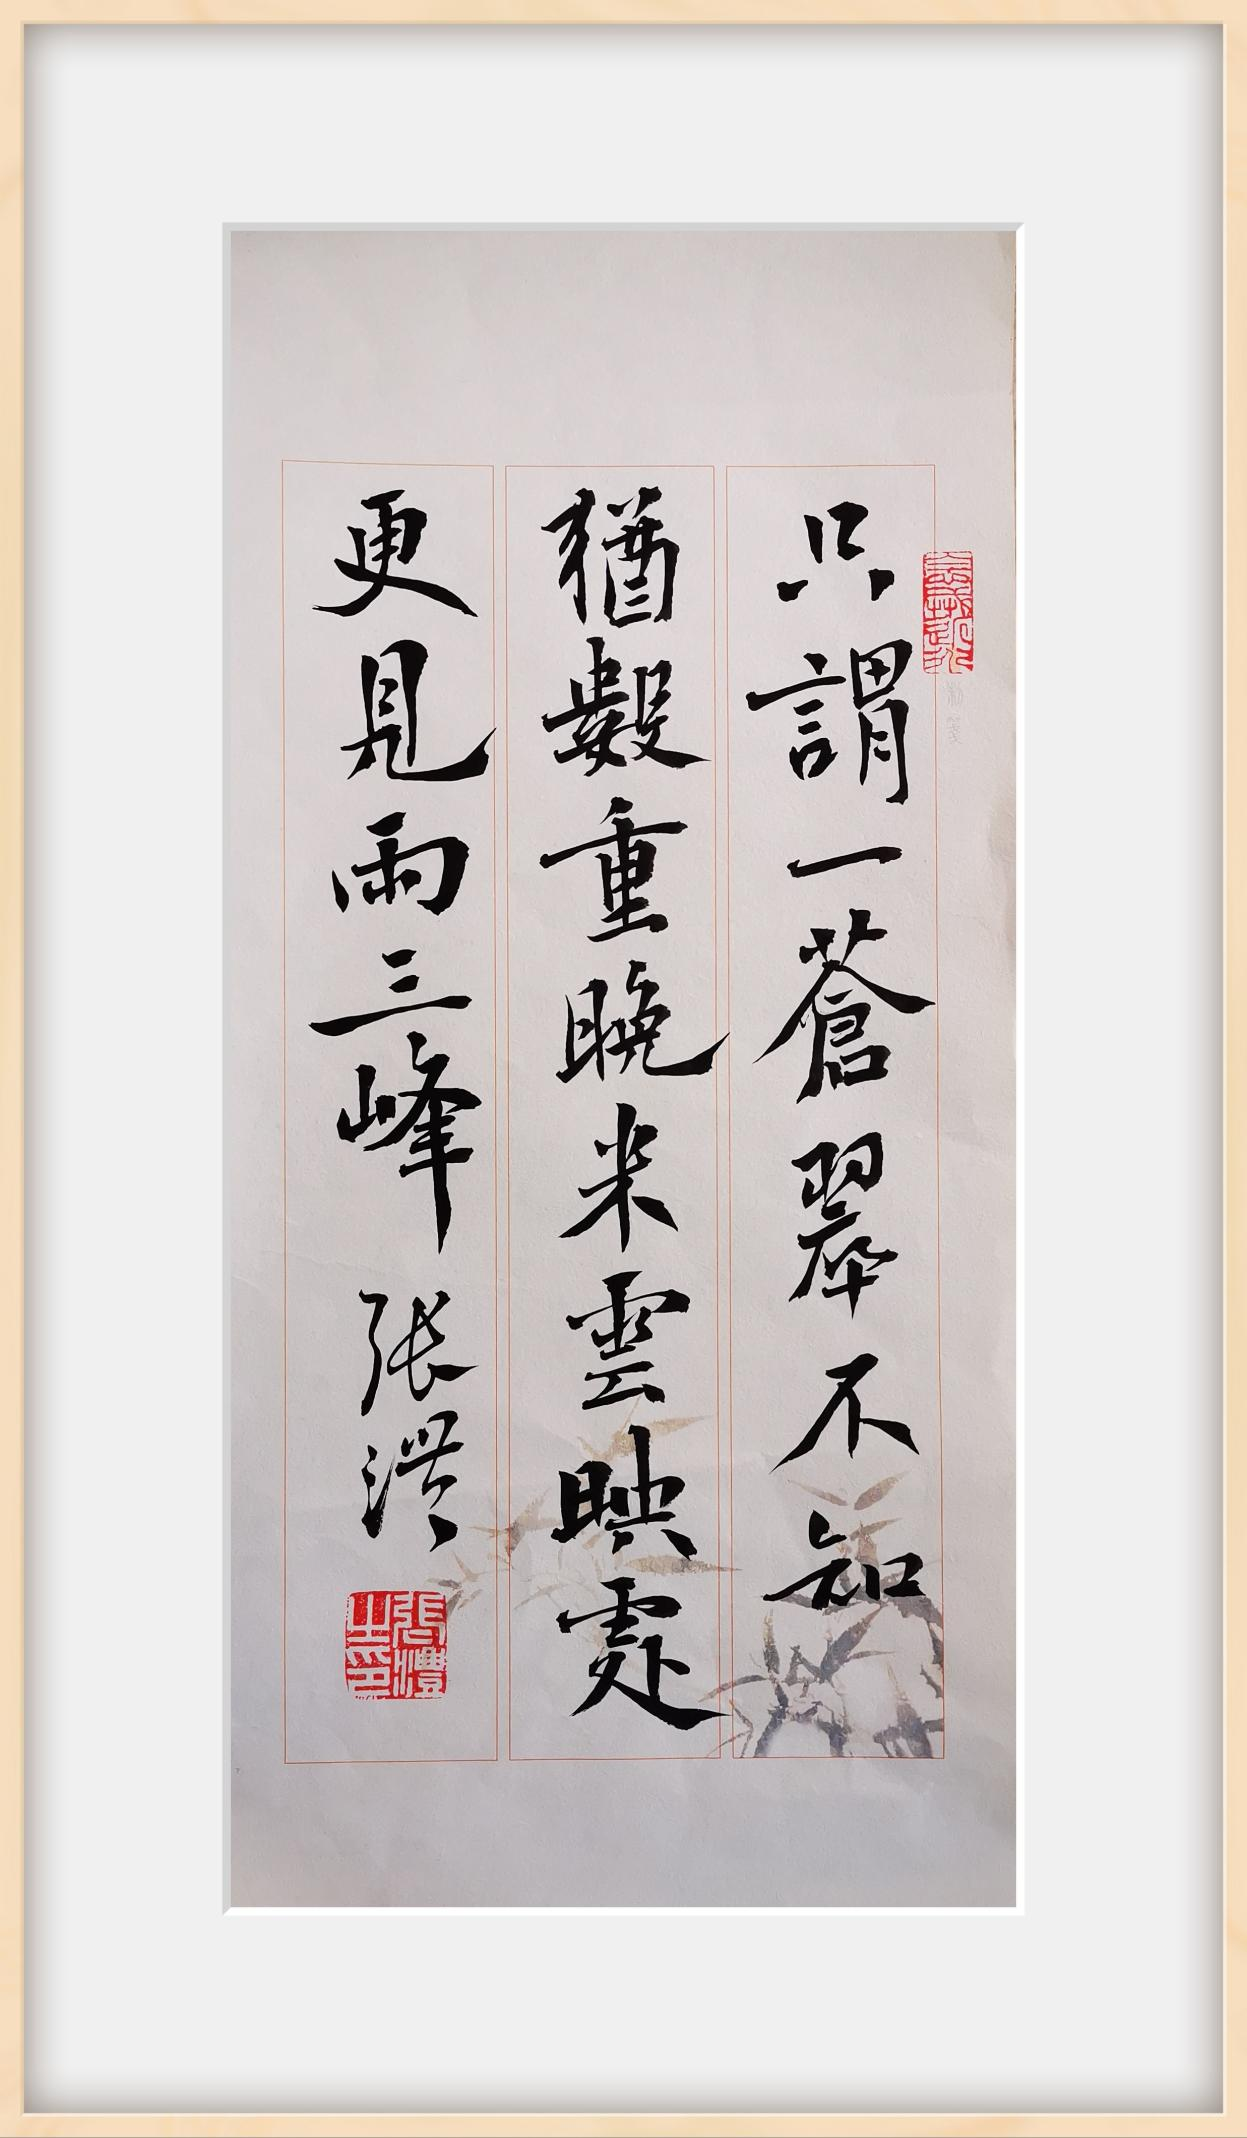 只謂一蒼翠不知
猶數重晚来雲映處
更見兩三峰 张澧
張澧之印